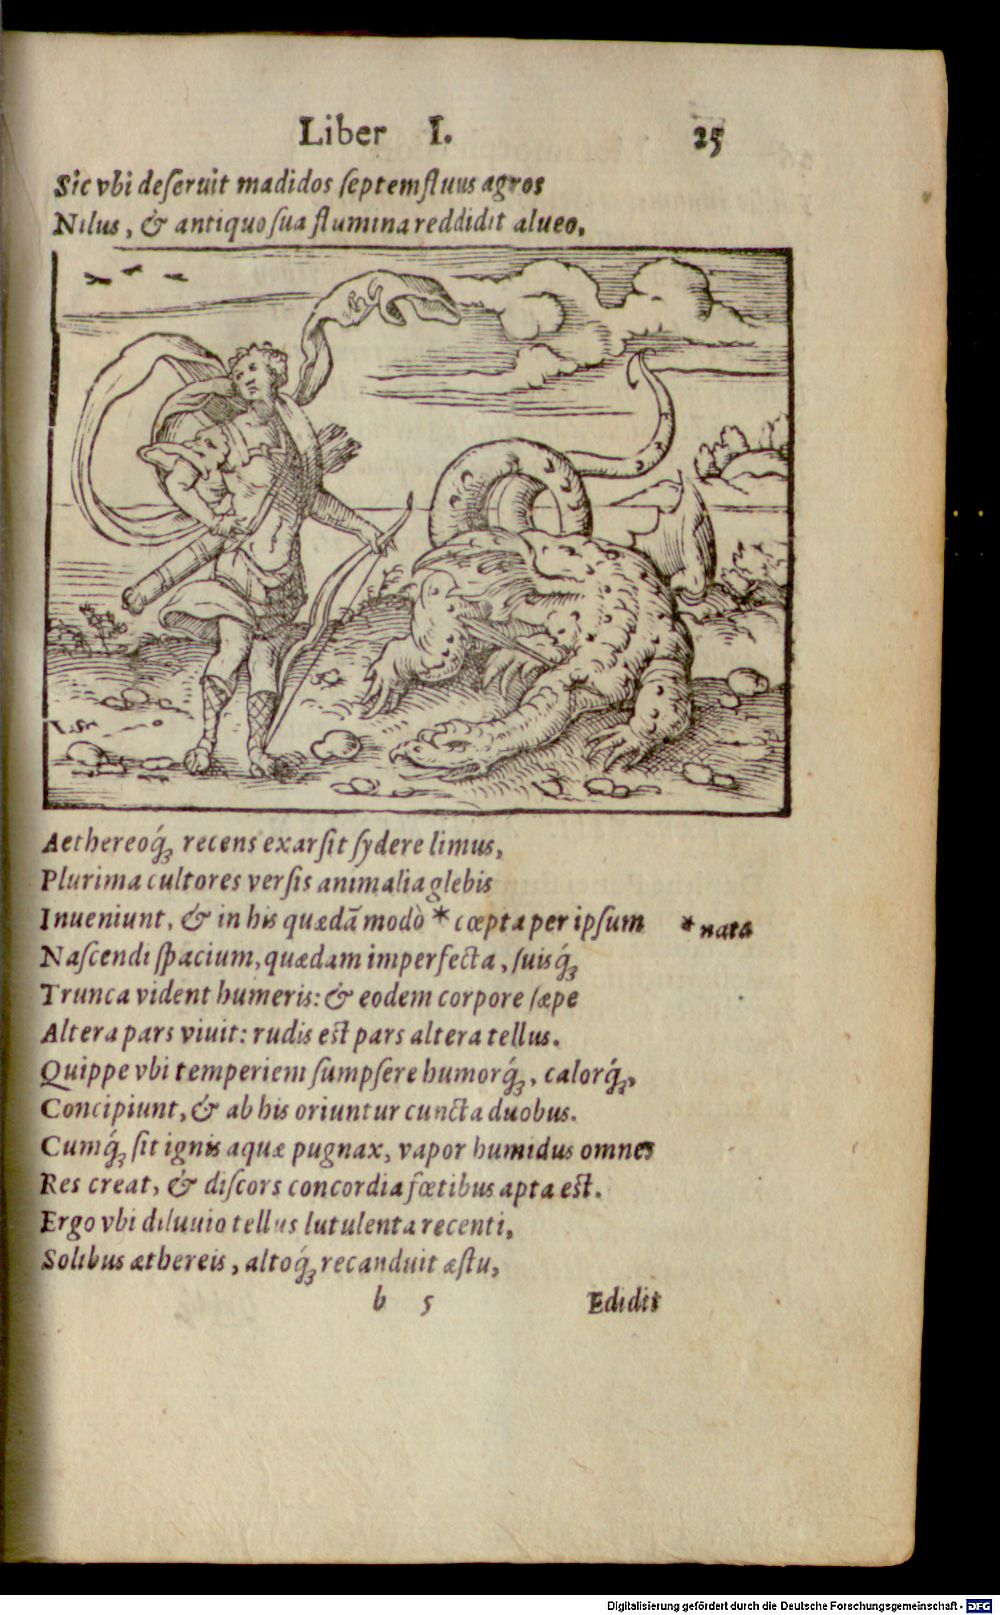 Liber I. 25
Sic vbi deſeruit madidos ſeptemfluus agros
Nilus, & antiquo ſua flumina reddidit alueo,
Aethereoq́ꝫ recens exarſit ſydere limus,
Plurima cultores verſis animalia glebis
Inueniunt, & in his quædā modò * cœpta per ipſum * nata
Naſcendi ſpacium, quædam imperfecta, ſuisq́ꝫ
Trunca vident humeris: & eodem corpore ſæpe
Altera pars viuit: rudis est pars altera tellus.
Quippe vbi temperiem ſumpſere humorq́ꝫ, calorq́ꝫ,
Concipiunt, & ab his oriuntur cuncta duobus.
Cumq́ꝫ ſit ignis aquæ pugnax, vapor humidus omnes
Res creat, & diſcors concordia fœtibus apta est.
Ergo vbi diluuio tellus lutulenta recenti,
Solibus æthereis, altoq́ꝫ recanduit æſtu,
b 5 Edidit
Digitalisierung gefördert durch die Deutsche Forschungsgemeinschaft - DFG